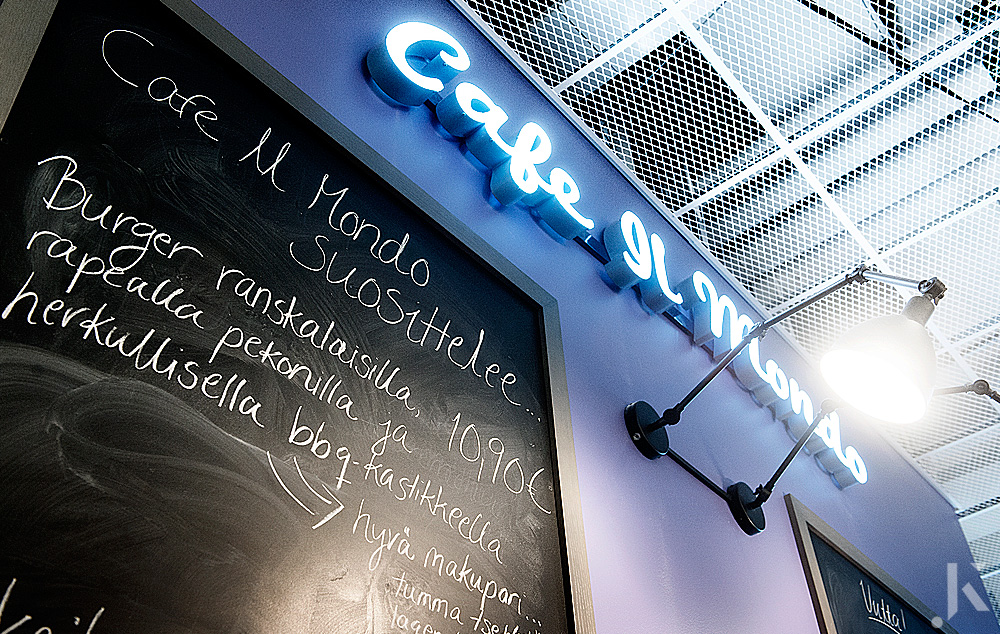 Cafe Il Mondo
Cafe Il Mondo
suosittelee...
Burger ranskalaisilla, 10,90€
rapealla pekonilla ja
herkullisella bbq-kastikkeella
hyvä makupari...
tumma tsekki
Uutta!